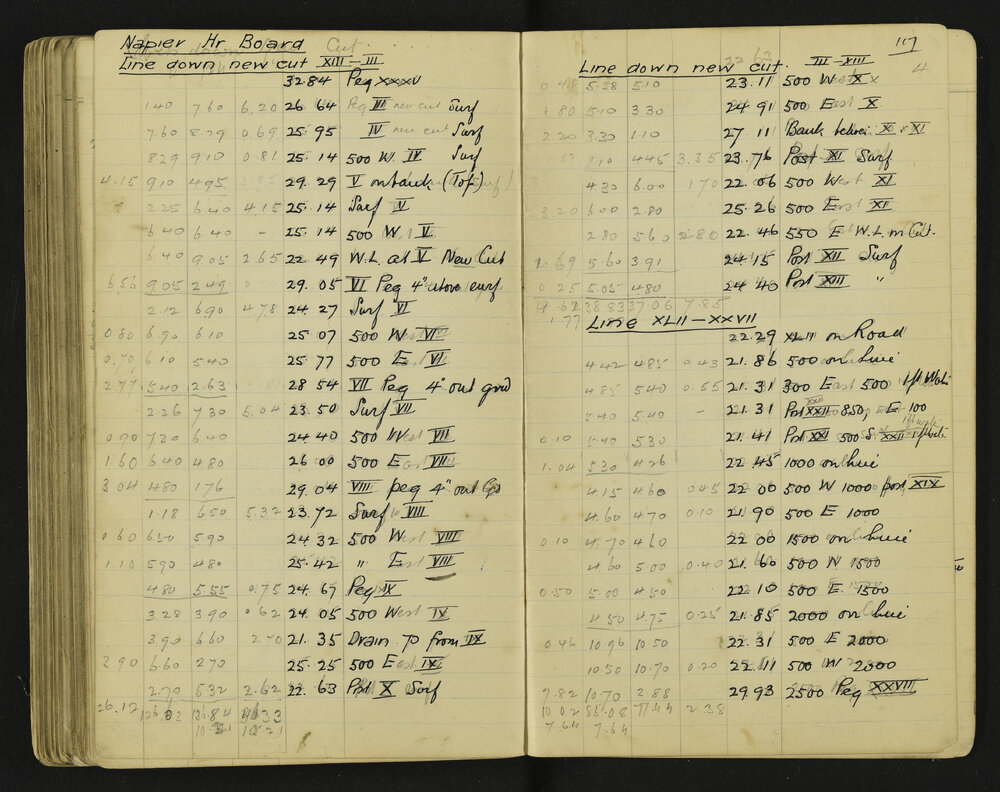 Napier Hr Board Cut.
Line down new cut XIII – III
32 84 Peg XXXV
1.40 7.60 6.20 26 64 Peg III new cut Surf
7.60 8.29 0.69 25.95 IV new cut Surf
8.29 9.10 0.81 25.14 500 W. IV Surf
4.15 9.10 4.95 29.29 V on bank (Top)
2.25 6.40 4.15 25.14 Surf V
6.40 6.40 - 25.14 500 W V
6.40 9.05 2.65 22.49 W.L. at V New Cut
6.56 9.05 2.49 29.05 VI Peg 4" above surf
2.12 6.90 4.78 24.27 Surf VI
0.80 6.90 6.10 25.07 500 W VI
0.70 6.10 5.40 25.77 500 E VI
2.77 5.40 2.63 28 54 VII Peg 4" out grnd
2.26 7.30 5.04 23.50 Surf VII
0.90 7.30 6.40 24.40 500 West VII
1.60 6.40 4.80 26.00 500 East VII
3.04 4.80 1.76 29.04 VIII peg 4" out
1.18 6.50 5.32 23.72 Surf VIII
0.60 6.50 5.90 24.32 500 W VIII
1.10 5.90 4.80 25.42 " E VIII
4.80 5.55 0.75 24.67 Peg IX
3.28 3.90 0.62 24.05 500 West IX
3.90 6.60 2.70 21.35 Drain 70 from IX
3.90 6.60 2.70 25.25 500 East IX
2.70 5.32 2.62 22.63 Post X Surf
26.12 126.63 136.84 33
10.21 10.21
117
Line down new cut. III – XIII
0.48 5.58 5.10 23.11 500 West X
1.80 5.10 3.30 24.91 500 East X
2.20 3.30 1.10 27 11 Bank between X & XI
1.10 4.45 3.35 23.76 Post XI Surf
4.30 6.00 1.70 22.06 500 West XI
3.20 6.00 2.80 25.26 500 East XI
2.80 5.60 2.80 22.46 550 E W.L. in Cut.
1.69 5.60 3.91 24.15 Post XII Surf
0.25 5.05 4.80 24 40 Post XIII "
9.62 38.83 37.06 7.85
1.77
Line XLII – XXVII
22.29 XLII on Road
4.42 4.85 0.43 21.86 500 on line
4.85 5.40 0.55 21.31 300 East 500 1 ft Water
5.40 5.40 - 21.31 Post XXII 850, E 100
0.10 5.40 5.30 21.41 Post XXI 500 S. XXII 1 ft water
1.04 5.30 4.26 22.45 1000 on line
4.15 4.60 0.45 22 00 500 W 1000 post XIX
4.60 4.70 0.10 21.90 500 E 1000
0.10 4.70 4.60 22 00 1500 on line
4.60 5.00 0.40 21.60 500 W 1500
0.50 5.00 4.50 22.10 500 E 1500
4.50 4.75 0.25 21.85 2000 on line
0.46 10.96 10.50 22.31 500 E 2000
10.50 10.70 0.20 22.11 500 W 2000
7.82 10.70 2.88 29.93 2500 Peg XXVIII
10.02 85.08 77.44 2.38
7.64 7.64